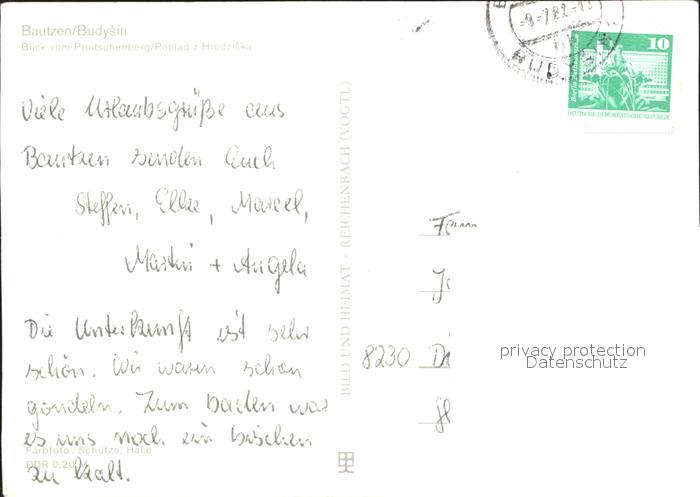 Bautzen/Budyšin
Blick vom Proitschenberg/Pohlad z Hrodźiška
Viele Urlaubsgrüße aus
Bautzen senden Euch
Steffen, Elke, Marcel,
Martin + Angela
Die Unterkunft ist sehr
schön. Wir waren schon
gondeln. Zum baden war
es uns noch ein bischen
zu kalt.
Farbfoto: Schütze, Halle
DDR 0,20
BILD UND HEIMAT · REICHENBACH (VOGTL)
10
DEUTSCHE DEMOKRATISCHE REPUBLIK
8230
privacy protection
Datenschutz